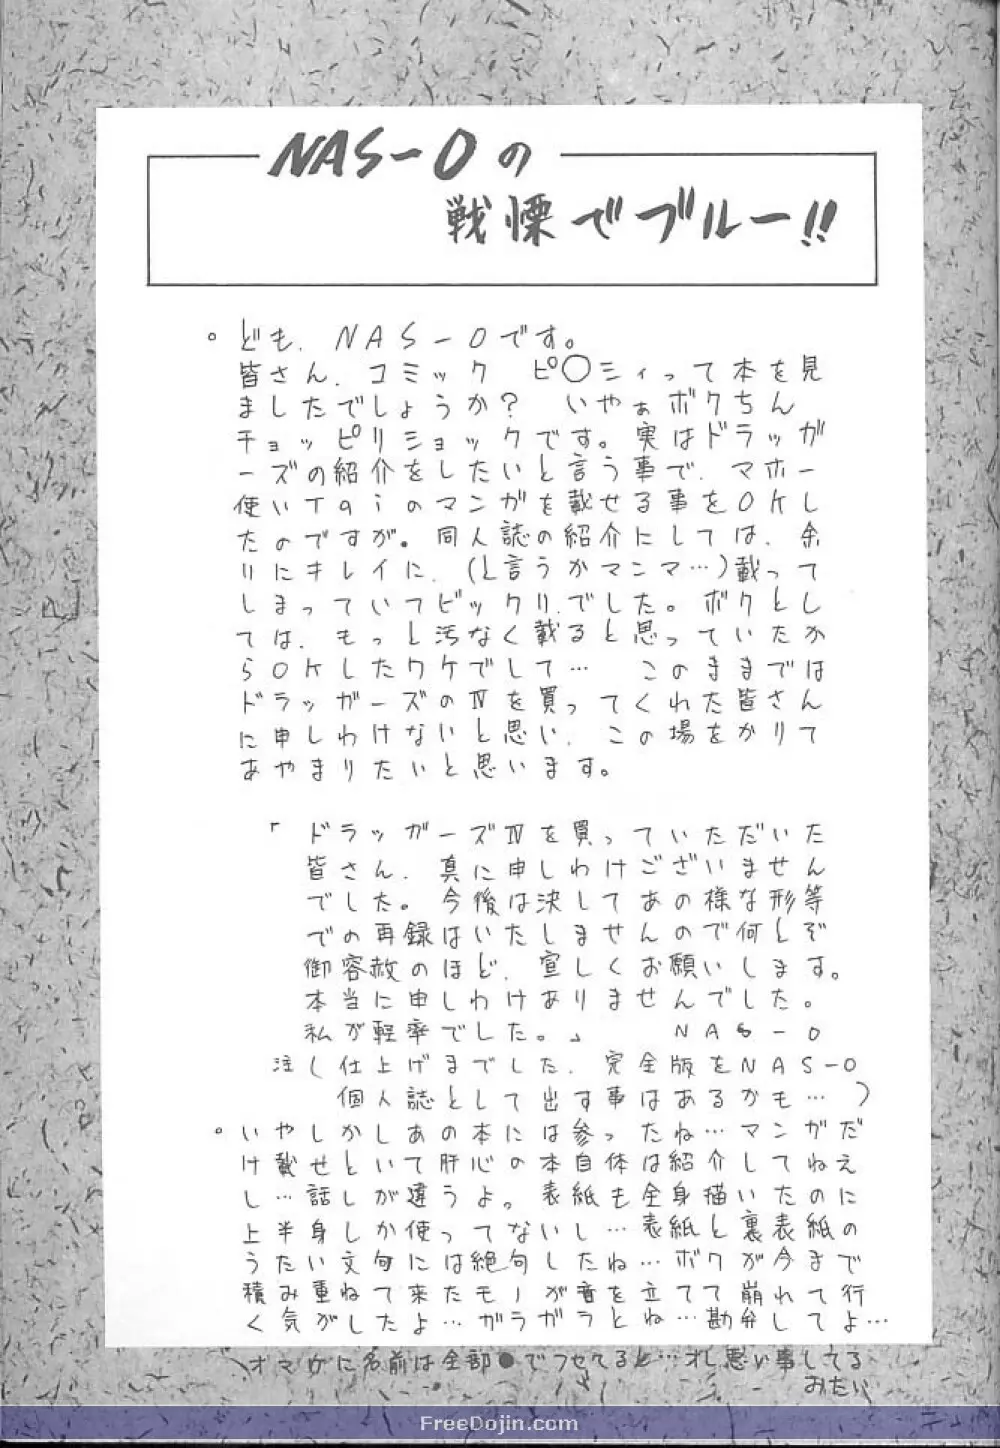 NAS-Oの
戦慄でブルー!!
。ども、NAS-Oです。
皆さん、コミック ピ〇シィって本を見
ましたでしょうか? いやぁボクちん
チョッピリショックです。実はドラッガ
ーズの紹介をしたいと言う事で、マホー
使いTaiのマンガを載せる事をOKし
たのですが。同人誌の紹介にしては、余
りにキレイに、(と言うかマンマ…)載って
しまっていてビックリ.でした。ボクとし
ては、もっと汚なく載ると思っていたか
らOKしたワケでして… このままでは
ドラッガーズのⅣを買ってくれた皆さん
に申しわけないと思い、この場をかりて
あやまりたいと思います。
「ドラッガーズⅣを買っていただいた
皆さん、真に申しわけございません
でした。今後は決してあの様な形等
での再録はいたしませんので何とぞ
御容赦のほど、宜しくお願いします。
本当に申しわけありませんでした。
私が軽率でした。」 NAS-O
注(仕上げまでした、完全版をNAS-O
個人誌として出す事はあるかも…)
。いやしかしあの本には参ったね…マンガだ
け載せといて肝心の本自体は紹介してねえ
し…話しが違うよ。表紙も全身描いたのに
上半身しか使ってないし…表紙と裏表紙の
うたい文句には絶句したね…ボクが今まで
積み重ねて来たモノが音を立てて崩れて行
く気がしたよ…ガラガラとね…勘弁してよ…
オマケに名前は全部●でフせてると…オレ悪い事してる
みたい
FreeDojin.com